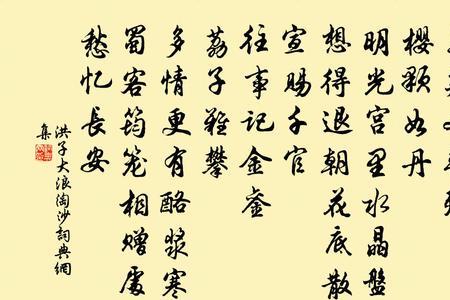 樱颗如丹
明光宫里水晶盤
想得退朝花底散
宣赐千官
往事记金銮
荔子難攀
多情更有酪浆寒
蜀客筠笼相赠處
愁忆長安
洪子大浪淘沙詞典網
集